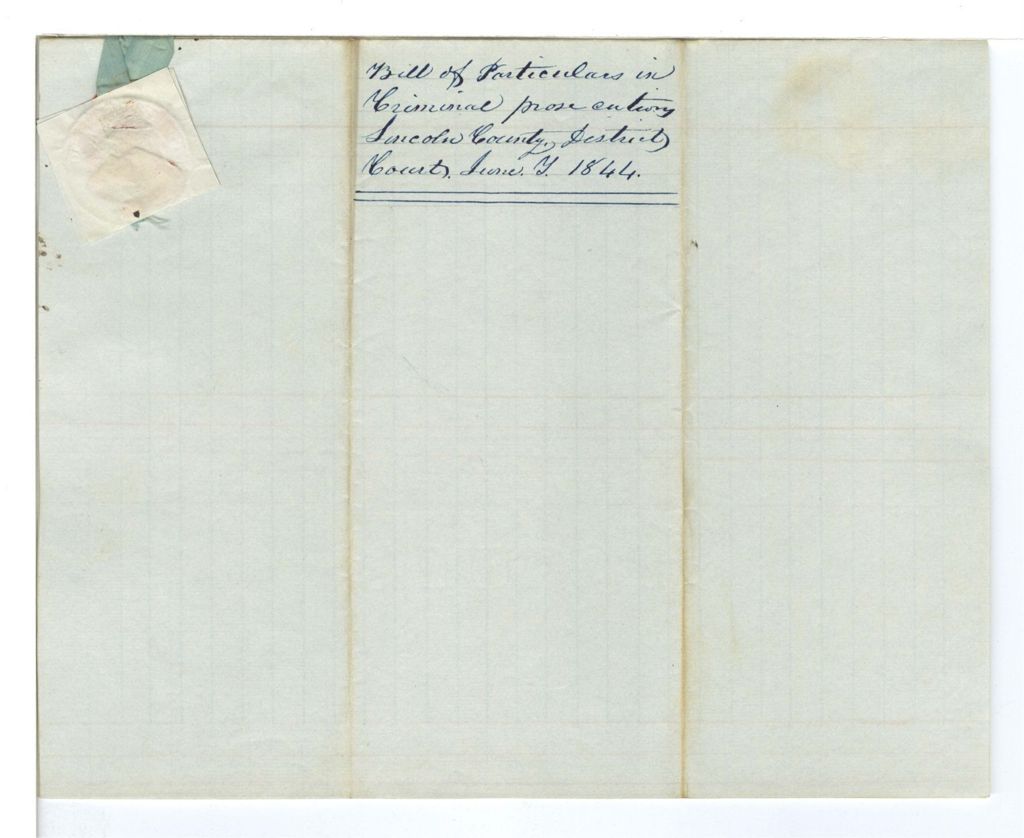 Bill of Particulars in
Criminal prosecutions
Lincoln County, District
Court, June. T. 1844.